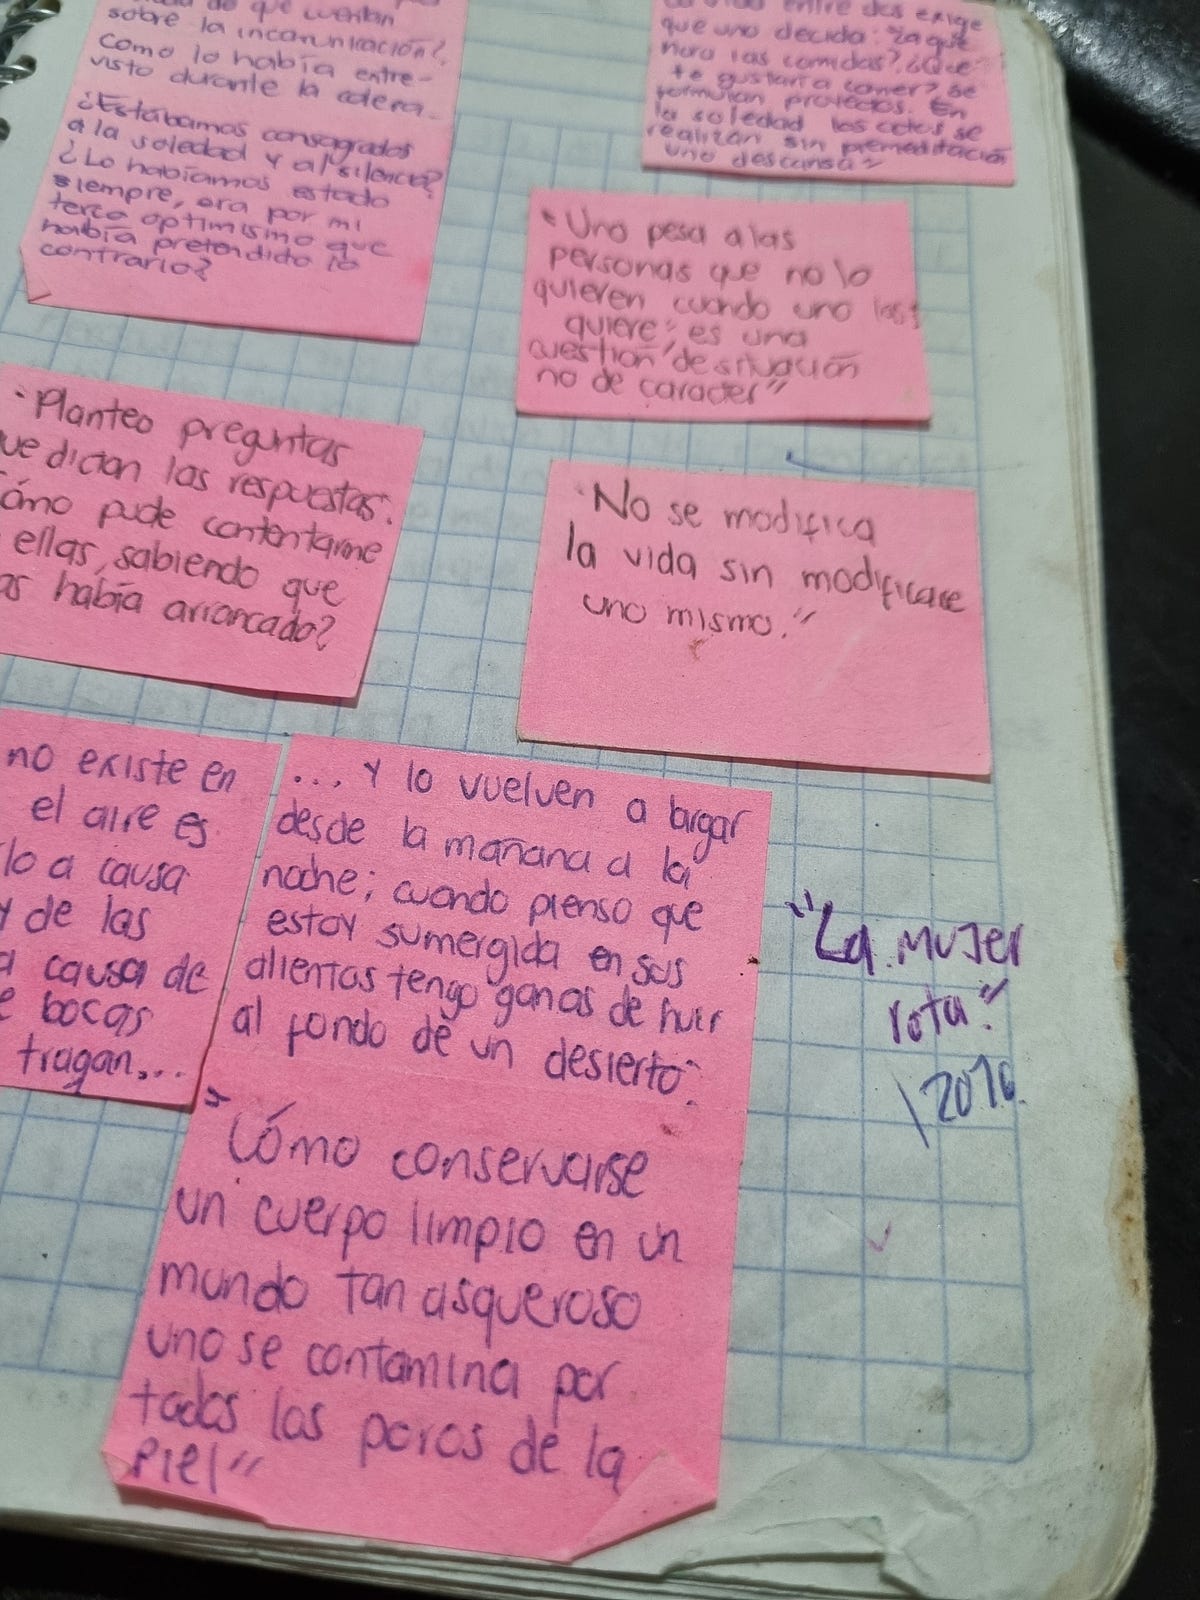 de que cuentan
sobre la incomunicación?
como lo había entre-
visto durante la cólera.
¿Estábamos consagrados
a la soledad y al silencio?
¿Lo habíamos estado
siempre, era por mi
terco optimismo que
había pretendido lo
contrario?
entre dos exige
que uno decida: "¿a qué
hora las comidas?, ¿Qué
te gustaría comer? se
formulan proyectos. En
la soledad los actos se
realizan sin premeditación
uno descansa"
"Uno pesa a las
personas que no lo
quieren cuando uno las
quiere" es una
cuestión de situación
no de caracter"
"Planteo preguntas
que dictan las respuestas.
Cómo pude contentarme
ellas, sabiendo que
as había arrancado?
"No se modifica
la vida sin modificarse
uno mismo."
no existe en
el aire es
lo a causa
y de las
a causa de
e bocas
tragan...
... y lo vuelven a largar
desde la mañana a la
noche; cuando pienso que
estoy sumergida en sus
alientos tengo ganas de huir
al fondo de un desierto."
"Cómo conservarse
un cuerpo limpio en un
mundo tan asqueroso
uno se contamina por
todos los poros de la
piel"
"La mujer
rota."